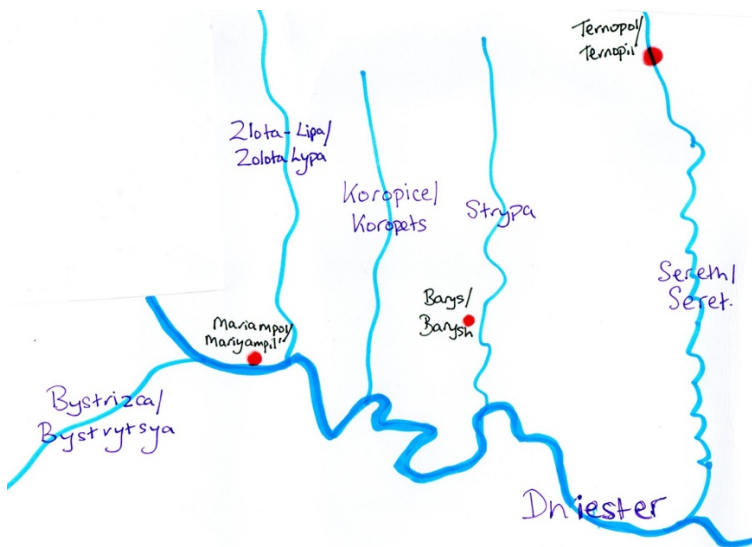 Ternopol/
Ternopil'
Zlota-Lipa/
Zolota Lypa
Koropice/
Koropets
Strypa
Sereth/
Seret.
Barys/
Barysh
Mariampol/
Mariyampil'
Bystrizca/
Bystrytsya
Dniester